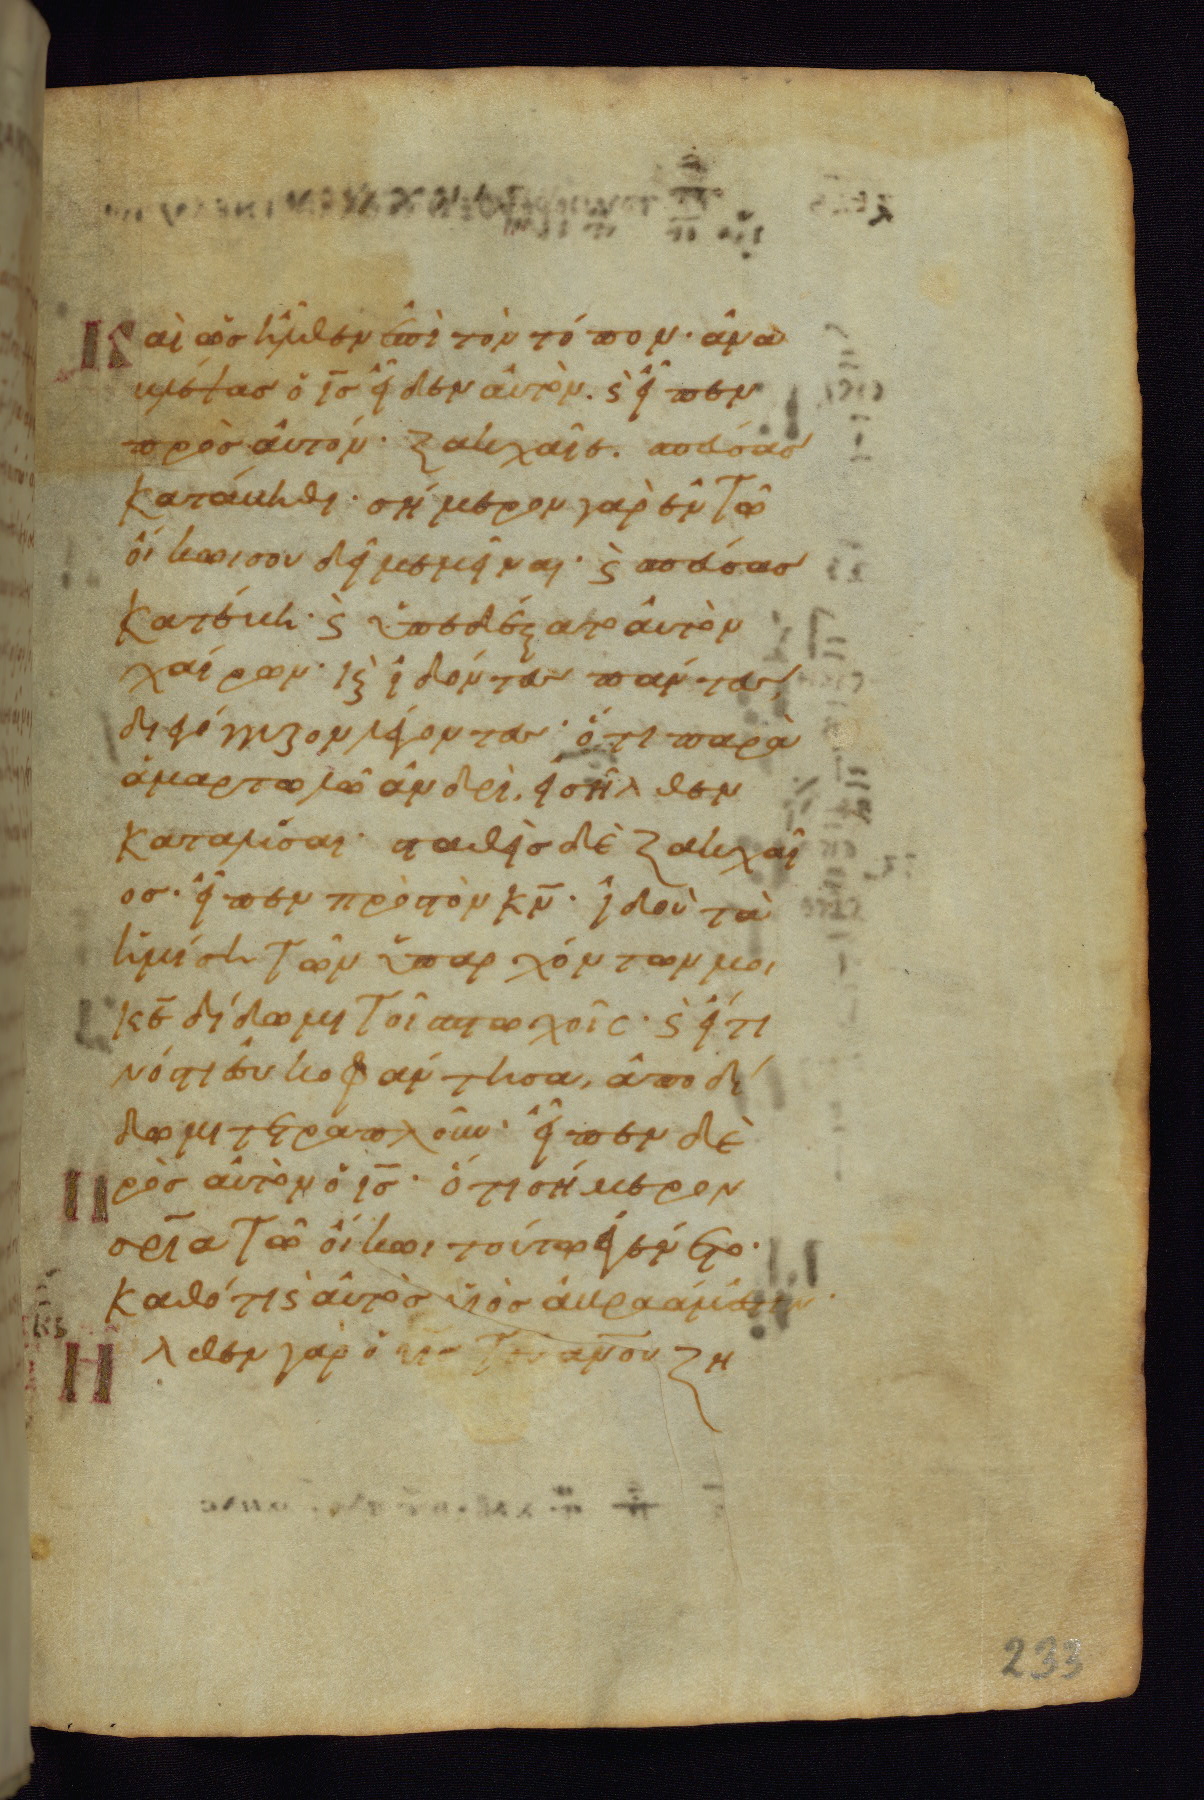 Καὶ ὡσ ἦλθεν ἐπὶ τὸν τόπον· ἀνα
βλέψασ ὁ ισ εἶδεν αὐτὸν. ϗ εἶπεν
πρὸσ αὐτόν· ζακχαῖε. σπεύσασ
κατάβηθι· σήμερον γὰρ ἐν τῶ
οἴκωι σου δεῖ με μεῖναι· ϗ σπεύσασ
κατέβη· ϗ ὑπεδέξατο αὐτὸν
χαίρων· κ ἰδόντεσ πάντεσ
διεγόγγυζον λέγοντεσ· ὅτι παρὰ
ἁμαρτωλῶ ἀνδρὶ. εἰσῆλθεν
καταλῦσαι· σταθεὶσ δὲ ζακχαῖ
οσ· εἶπεν πρὸσ τὸν κν· ἰδοὺ τὰ
ἡμίση τῶν ὑπαρχόντων μου
κε δίδωμι τοῖσ πτωχοῖς· ϗ εἴ τι
νόσ τι ἐσυκοφάντησα, ἀποδί
δωμι τετραπλοῦν· εἶπεν δὲ
Πρὸσ αὐτὸν ὁ ισ· ὅτι σήμερον
σρία τῶ οἴκωι τούτω ἐγένετο·
καθότι ϗ αὐτὸσ υἱὸσ ἀβραάμ ἐστιν·
Ἦλθεν γὰρ ὁ υσ τοῦ ανου ζη
233